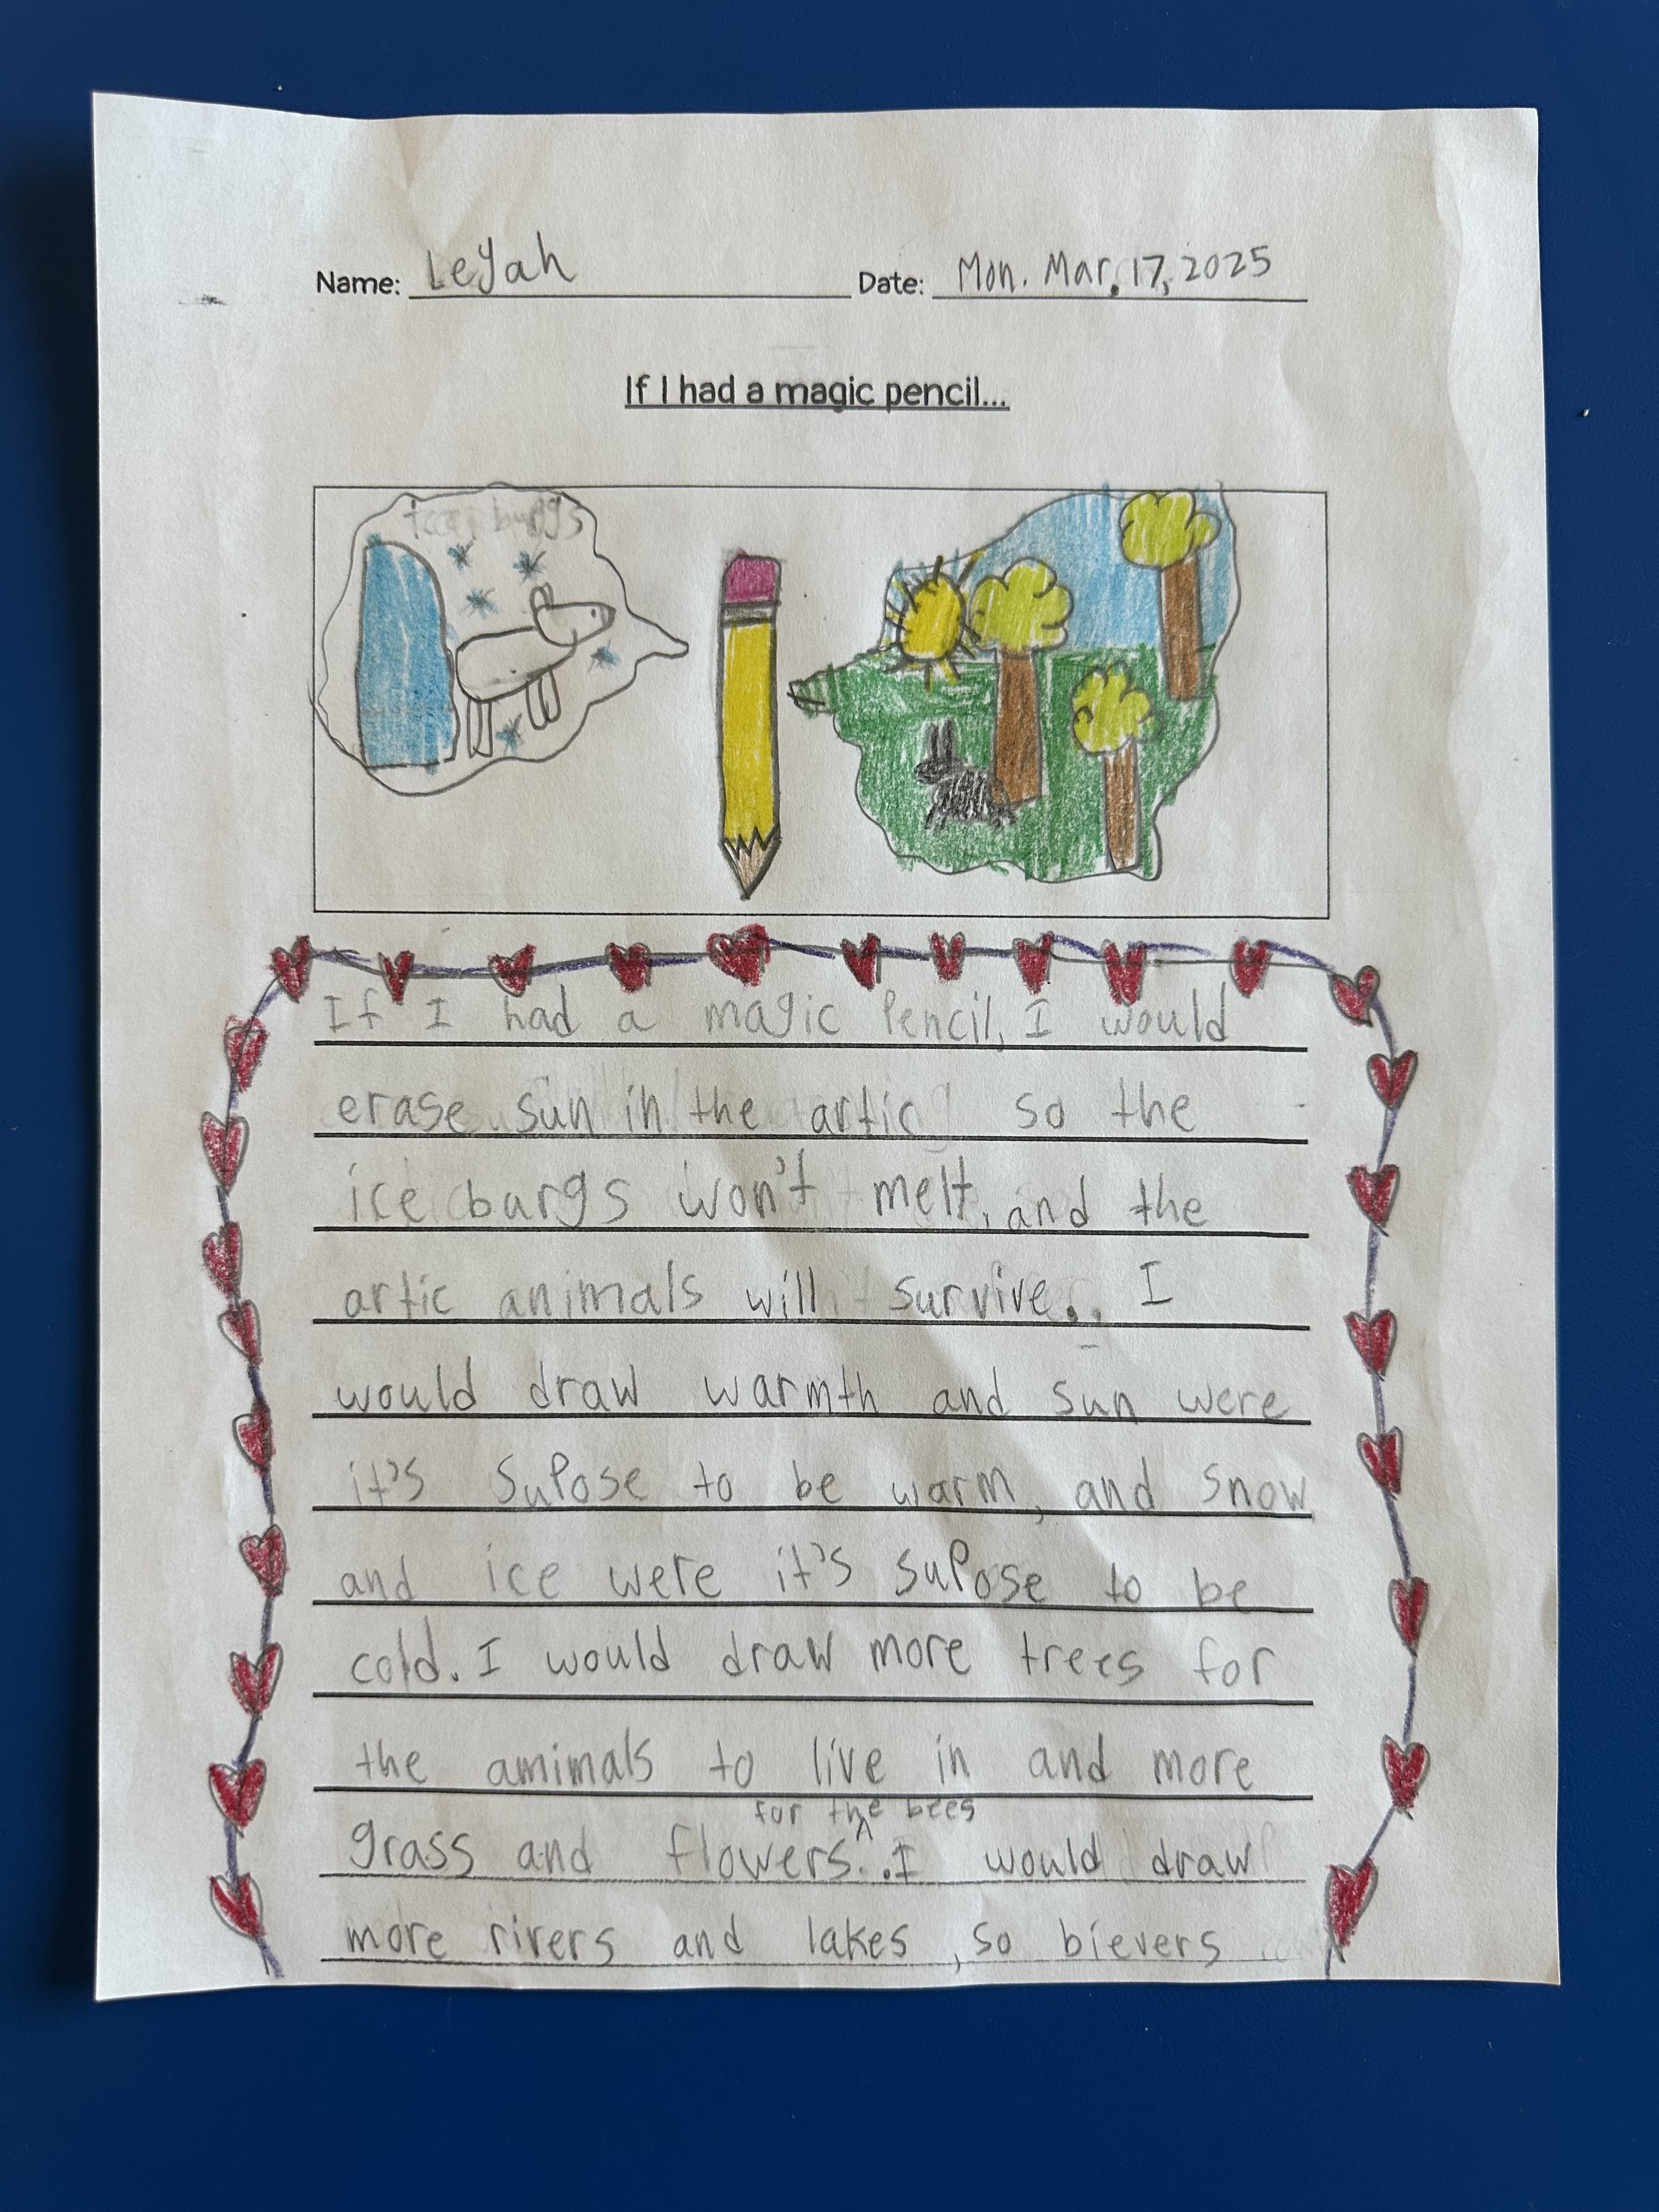 Name: Leyah Date: Mon. Mar, 17, 2025
If I had a magic pencil...
If I had a magic Pencil, I would
erase sun in the artic so the
ice burgs won't melt, and the
artic animals will survive.. I
would draw warmth and sun were
it's supose to be warm, and snow
and ice were it's supose to be
cold. I would draw more trees for
the amimals to live in and more
for the bees
grass and flowers. .I would draw
more rivers and lakes, so bievers